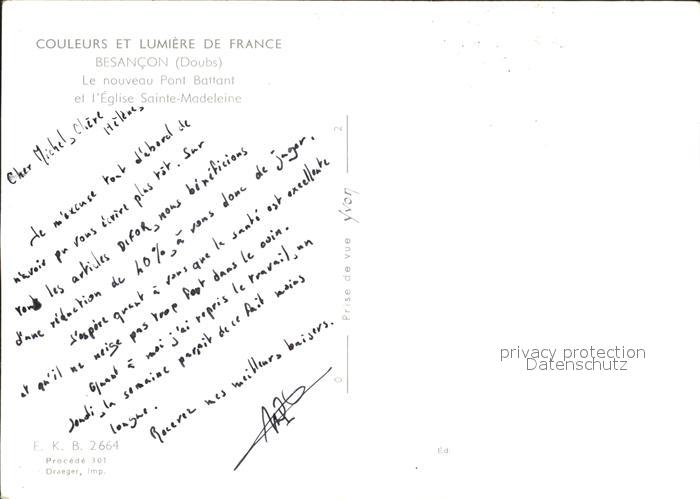 COULEURS ET LUMIÈRE DE FRANCE
BESANÇON (Doubs)
Le nouveau Pont Battant
et l'Église Sainte-Madeleine
Cher Michel, Chère
Hélène,
Je m'excuse tout d'abord de
n'avoir pu vous écrire plus tôt. Sur
tous les articles DIFOR, nous bénéficions
d'une réduction de 40%, à vous donc de juger.
J'espère quant à vous que la santé est excellente
et qu'il ne neige pas trop fort dans le coin.
Quant à moi j'ai repris le travail, un
Jeudi, la semaine paraît de ce fait moins
longue.
Recevez mes meilleurs baisers.
E. K. B. 2664
Procédé 301
Draeger, Imp.
2
Prise de vue yvon
0
privacy protection
Datenschutz
Éd